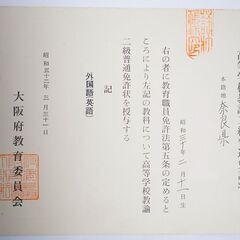 本籍地 奈良県
昭和三十年二月十一日生
右の者に教育職員免許法第五条の定めると
ころにより左記の教科について高等学校教諭
二級普通免許状を授与する
記
外国語(英語)
昭和五十三年三月三十一日
大阪府教育委員会